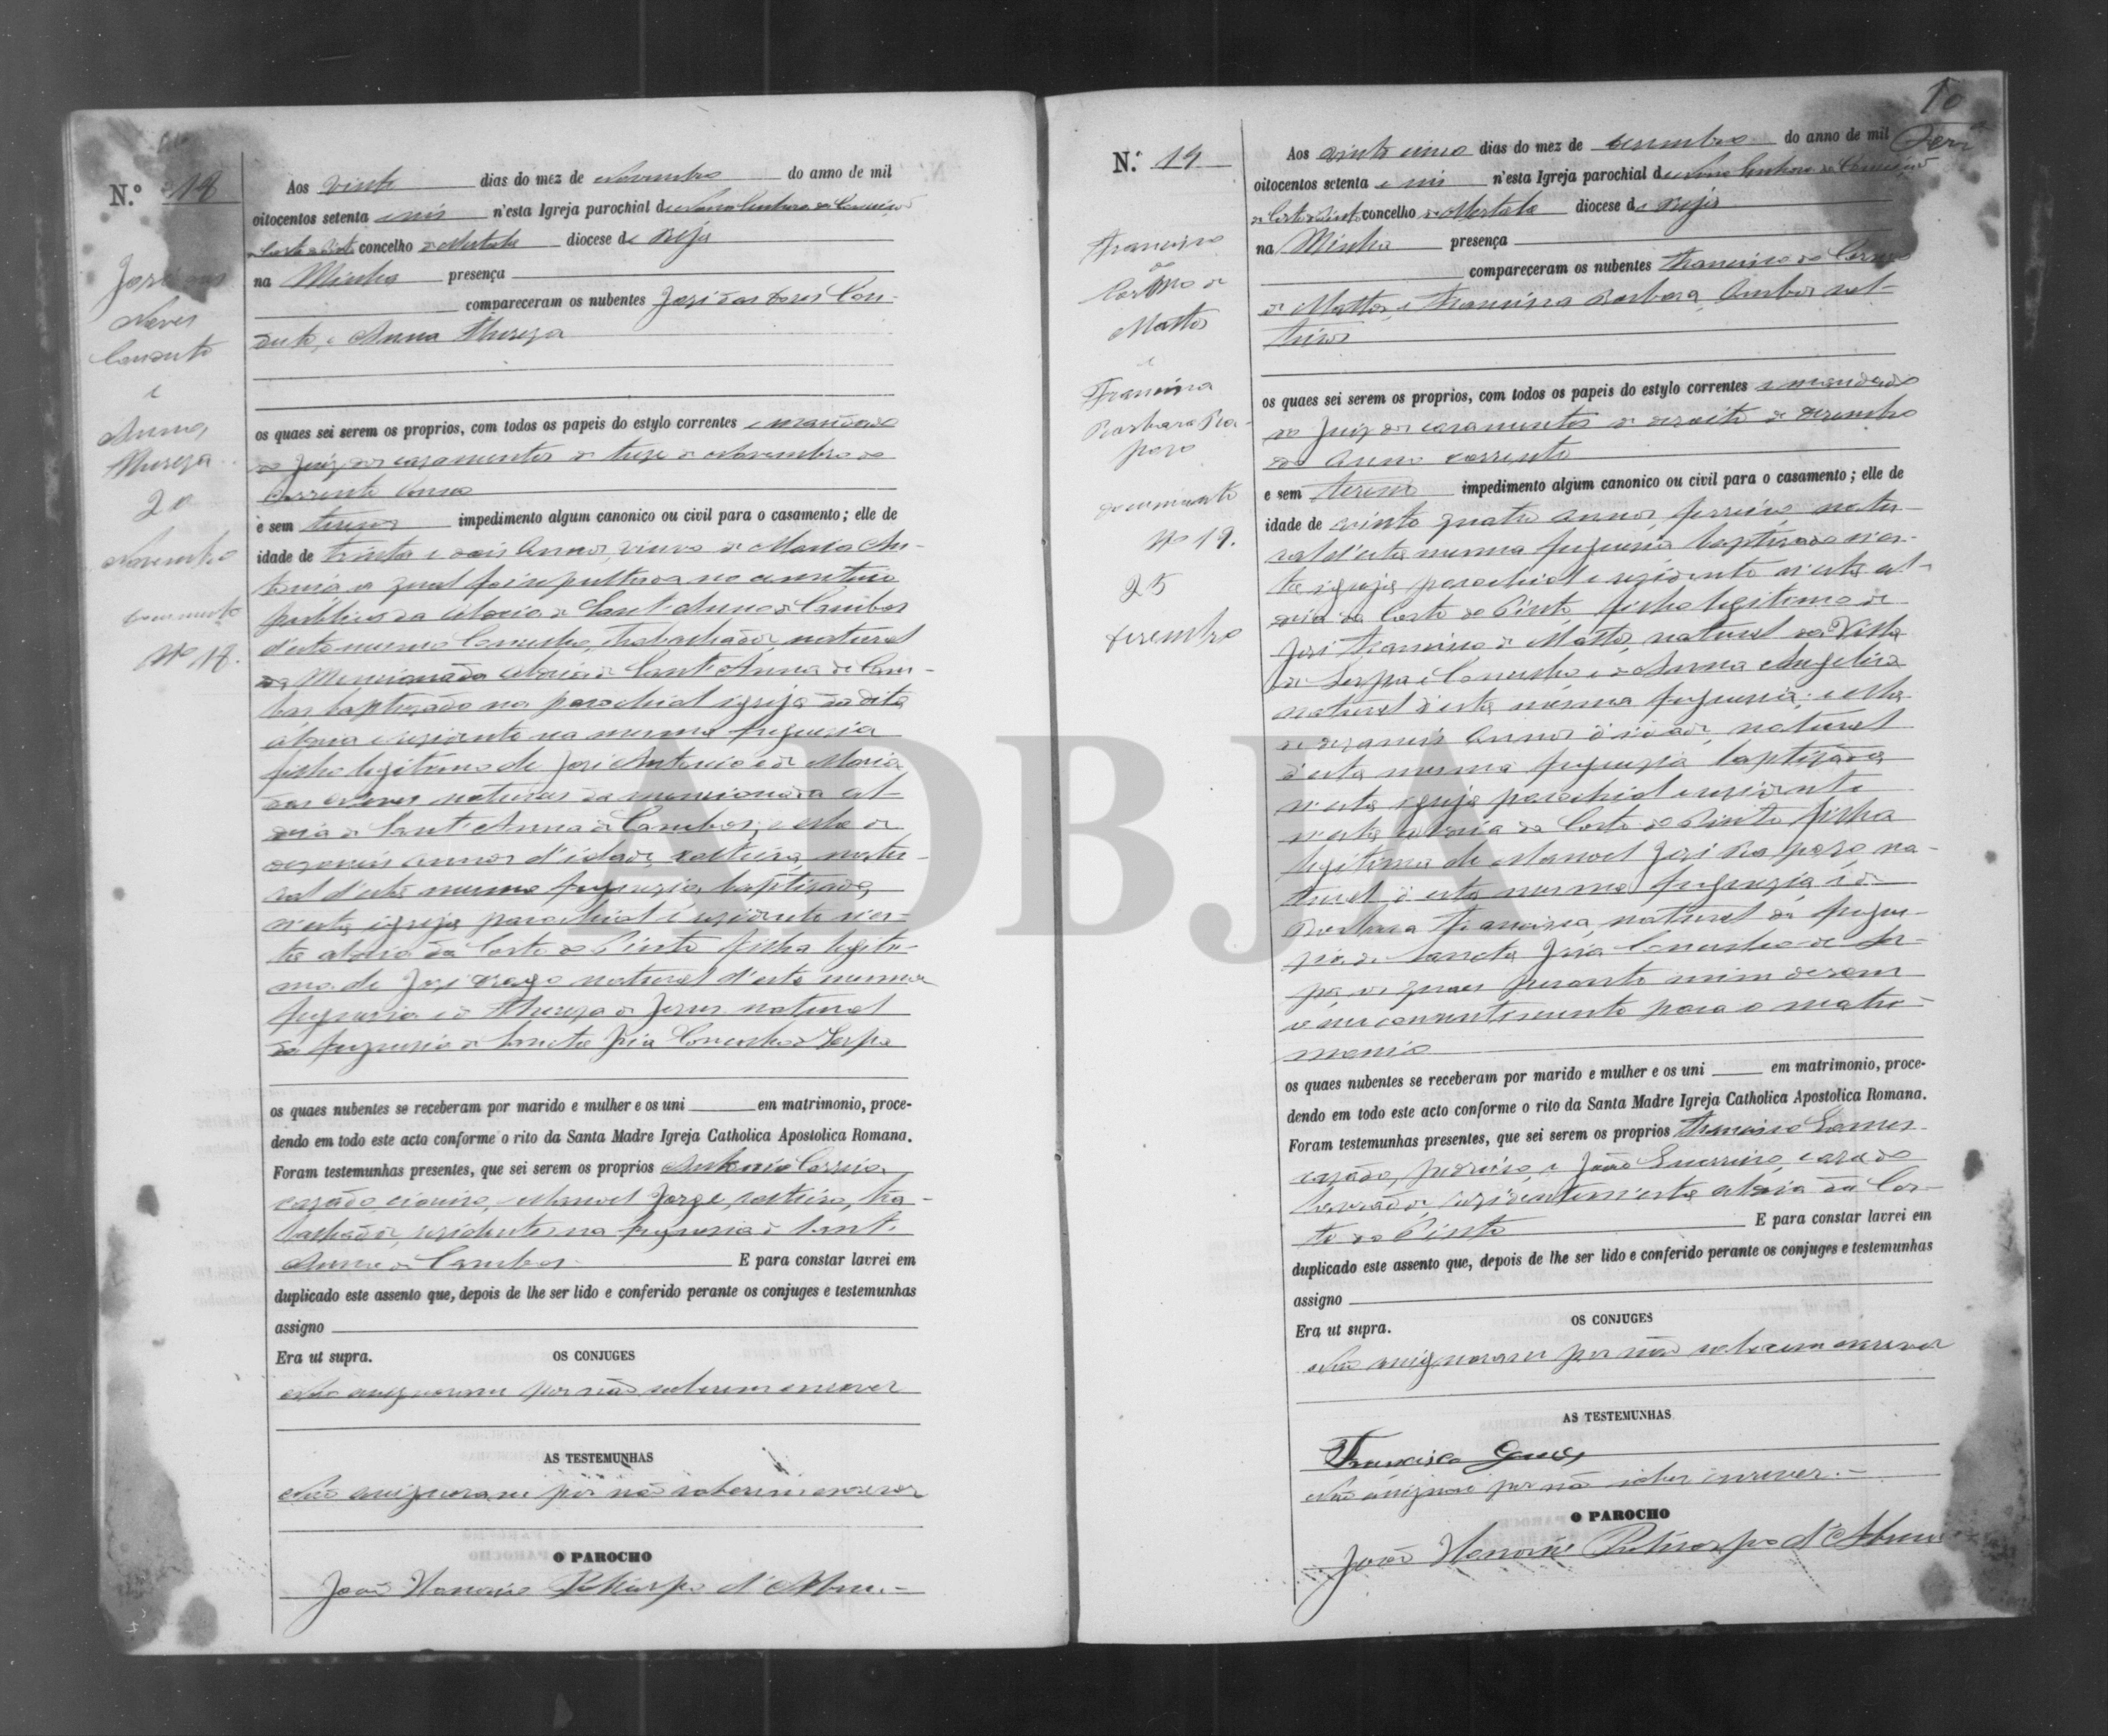 N.º 18
José das
Neves
Conduto
e
Anna
Thereza
20
Novembro
documento
Nº 18.
Aos vinte dias do mez de Novembro do anno de mil
oitocentos setenta e seis n'esta Igreja parochial de Nossa Senhora da Conceição
da Corte do Pinto concelho de Mertola diocese de Beja
na Minha presença
compareceram os nubentes José das Neves Con-
duto, e Anna Thereza
os quaes sei serem os proprios, com todos os papeis do estylo correntes e mandado
do Juiz dos casamentos de treze de Novembro do
corrente anno
e sem terem impedimento algum canonico ou civil para o casamento; elle de
idade de trinta e dois annos, viuvo de Maria An-
tonia a qual foi sepultada no cemiterio
publico da aldeia de Sant'Anna de Cambas
d'este mesmo Concelho, trabalhador, natural
da mencionada aldeia de Sant'Anna de Cam-
bas baptizado na parochial igreja da dita
aldeia e rezidente na mesma freguezia
filho legitimo de José Antonio e de Maria
das Neves naturaes da mencionada al-
deia de Sant'Anna de Cambas; e ella de
dezaseis annos d'idade, solteira, natu-
ral d'esta mesma freguezia, baptizada
n'esta igreja parochial e rezidente n'es-
ta aldeia da Corte do Pinto filha legiti-
ma de José natural d'esta mesma
freguezia e de Thereza de Jesus natural
da freguezia de Sancta Iria Concelho de Serpa
os quaes nubentes se receberam por marido e mulher e os uni em matrimonio, proce-
dendo em todo este acto conforme o rito da Santa Madre Igreja Catholica Apostolica Romana.
Foram testemunhas presentes, que sei serem os proprios Antonio Correia,
cazado, Manoel Jorge, solteiro, tra-
balhador, rezidentes na freguezia de Sant'
Anna de Cambas. E para constar lavrei em
duplicado este assento que, depois de lhe ser lido e conferido perante os conjuges e testemunhas
assigno
Era ut supra.
OS CONJUGES
Não assignaram por não saberem escrever
AS TESTEMUNHAS
Não assignaram por não saberem escrever
O PAROCHO
João d'Abreu.
10
N.º 19
Francisco
do
Carmo de
Mattos
e
Francisca
Barbara Ra-
pozo
documento
Nº 19.
25
Dezembro
Aos vinte cinco dias do mez de Dezembro do anno de mil
oitocentos setenta e seis n'esta Igreja parochial de Nossa Senhora da Conceição
da Corte do Pinto concelho de Mertola diocese de Beja
na Minha presença
compareceram os nubentes Francisco do Carmo
de Mattos, e Francisca Barbara, ambos sol-
teiros
os quaes sei serem os proprios, com todos os papeis do estylo correntes e mandado
do Juiz dos casamentos de dezoito de Dezembro
do anno corrente
e sem terem impedimento algum canonico ou civil para o casamento; elle de
idade de vinte quatro annos, ferreiro, natu-
ral d'esta mesma freguezia, baptizado n'es-
ta igreja parochial e rezidente n'esta al-
deia da Corte do Pinto, filho legitimo de
José Francisco de Mattos, natural da Villa
de Serpa e Concelho e de Anna Angelica
natural d'esta mesma freguezia; e ella
de dezaseis annos d'idade, natural
d'esta mesma freguezia baptizada
n'esta igreja parochial e rezidente
n'esta aldeia da Corte do Pinto filha
legitima de Manoel José Rapozo na-
tural d'esta mesma freguezia e de
Barbara Francisca, natural da fregue-
zia de Sancta Iria Concelho de Ser-
pa, os quaes perante mim deram
o seu consentimento para o matri-
monio
os quaes nubentes se receberam por marido e mulher e os uni em matrimonio, proce-
dendo em todo este acto conforme o rito da Santa Madre Igreja Catholica Apostolica Romana.
Foram testemunhas presentes, que sei serem os proprios Francisco Gomes
cazado, pedreiro, e João Guerreiro, cazado
lavrador, rezidentes n'esta aldeia da Cor-
te do Pinto E para constar lavrei em
duplicado este assento que, depois de lhe ser lido e conferido perante os conjuges e testemunhas
assigno
Era ut supra.
OS CONJUGES
Não assignaram por não saberem escrever
AS TESTEMUNHAS
Francisco Gomes
Não assignou por não saber escrever.
O PAROCHO
João d'Abreu
ADBJA